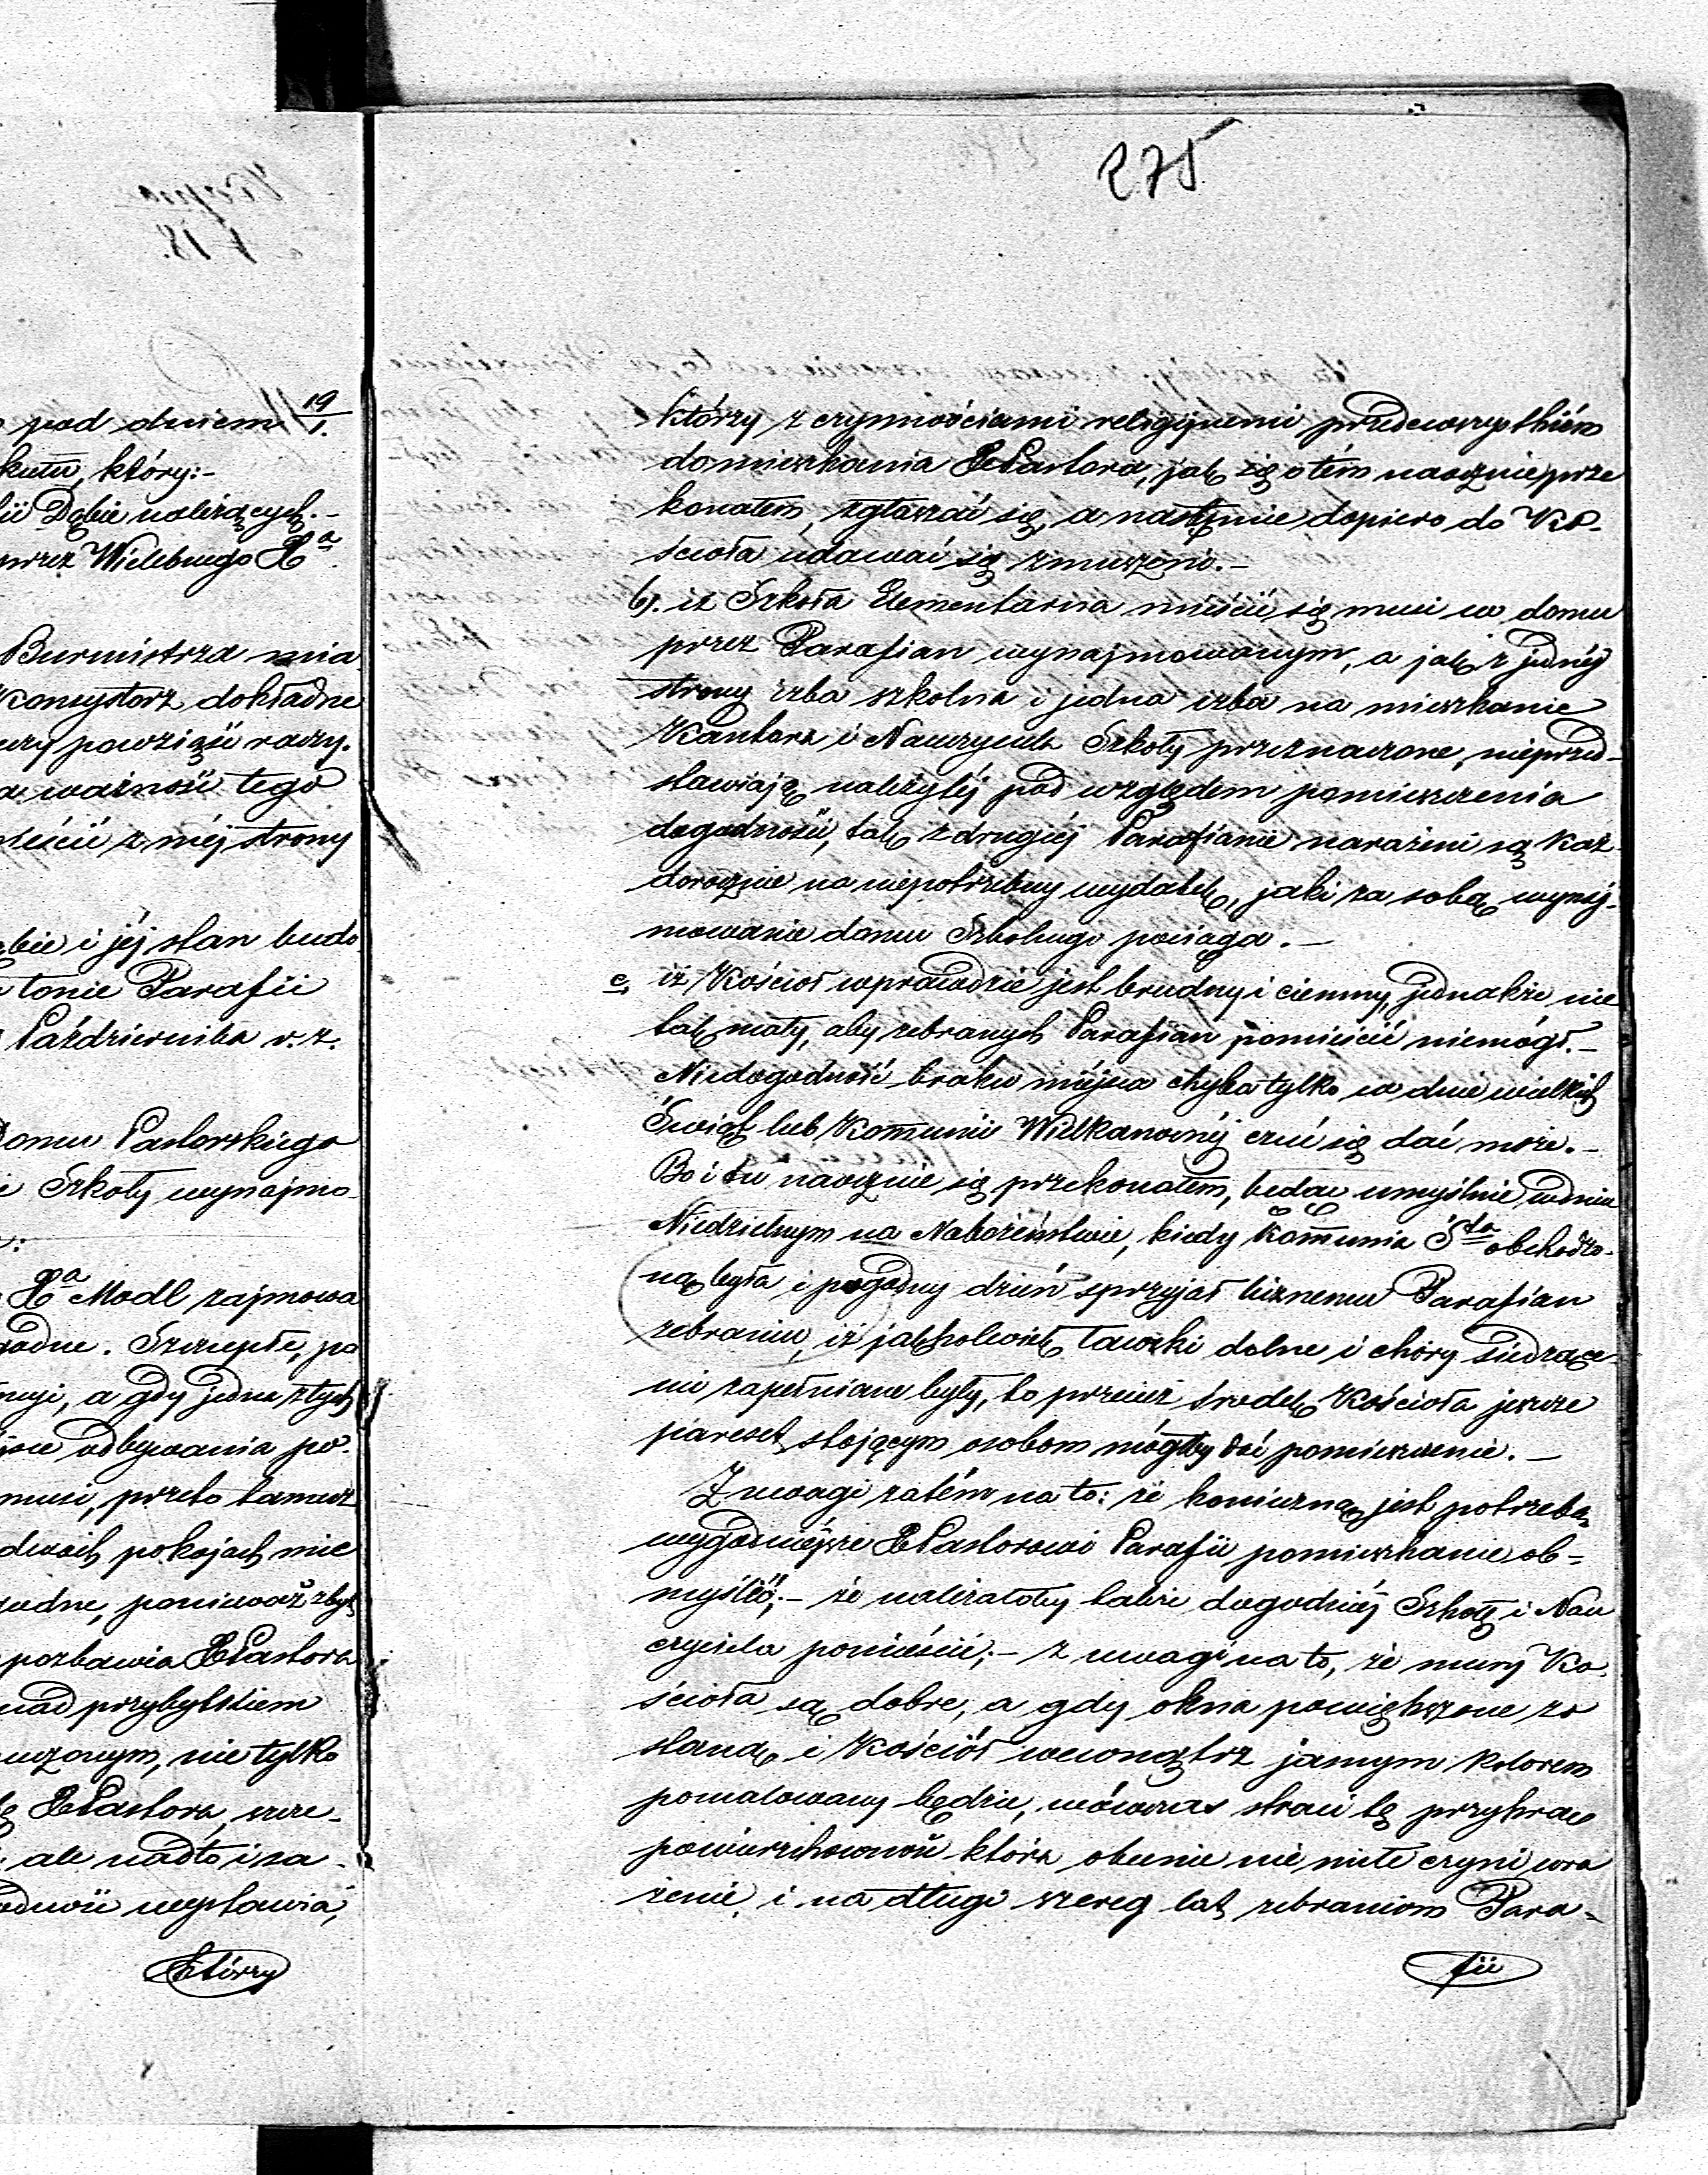 275
pod dniem 19/1.
katu, który:-
lii Dąbie należących.-
przez Wielebnego Xa
Burmistrza mia
Konsystorz dokładne
powziąść raczy.
ważność tego
z méj strony
bie i jéj stan budo
łonie Parafii
Października r. z.
Domu Pastorskiego
i Szkoły wynajmo
Xa Modl zajmowa
godne. Szczupłe, po
a gdy jedna z tych
odbywania po-
musi, przeto tamuż
dwóch pokojach mie
godne, ponieważ zbyt
pozbawia XPastora
nad przybytkiem
nie tylko
XPastora, szcze-
ale nadto i za-
wystawia,
którzy
którzy z czynnościami religijnemi przedewszystkiém
do mieszkania XPastora, jak się o tém naocznie prze
konałem, zgłaszać się, a następnie dopiero do Ko-
ścioła udawać się zmuszeni.-
b). iż Szkoła Elementarna mieścić się musi w domu
przez Parafian wynajmowanym, a jak z jednéj
strony izba szkolna i jedna izba na mieszkanie
Kantora i Nauczyciela Szkoły przeznaczone, nieprzed-
stawiają należytéj pod względem pomieszczenia
dogodności, tak z drugiéj Parafianie narażeni są każ-
dorocznie na niepotrzebny wydatek, jaki za sobą wynaj-
mowanie domu Szkolnego pociąga.-
c, iż Kościoł wprawdzie jest brudny i ciemny, jednakże nie
tak mały, aby zebranych Parafian pomieścić niemógł.-
Niedogodność braku miejsca chyba tylko w dnie wielkich
Świąt lub Kommunii Wielkanocnéj czuć się dać może.-
Bo i tu naocznie się przekonałem, będąc umyślnie w dniu
Niedzielnym na Nabożeństwie, kiedy Kommunia Sta obchodzo-
ną była i pogodny dzień sprzyjał licznemu Parafian
zebraniu, iż jakkolwiek ławki dolne i chóry siedzące-
mi zapełniane były, to przecież środek Kościoła jeszcze
pareset stojącym osobom mógłby dać pomieszczenie.-
Z uwagi zatém na to: że konieczną jest potrzebą
wygodniejsze XPastorowi Parafii pomieszkanie ob-
myśléć;- że należałoby także dogodniéj Szkołę i Nau
czyciela pomieścić;- z uwagi na to, że mury Ko-
ścioła są dobre, a gdy okna powiększone zo
staną i Kościół wewnątrz jasnym kolorem
pomalowany będzie, wówczas straci tę przykrą
powierzchowność która obecnie nie miłe czyni wra
żenie, i na długi szereg lat zebraniom Para-
fii